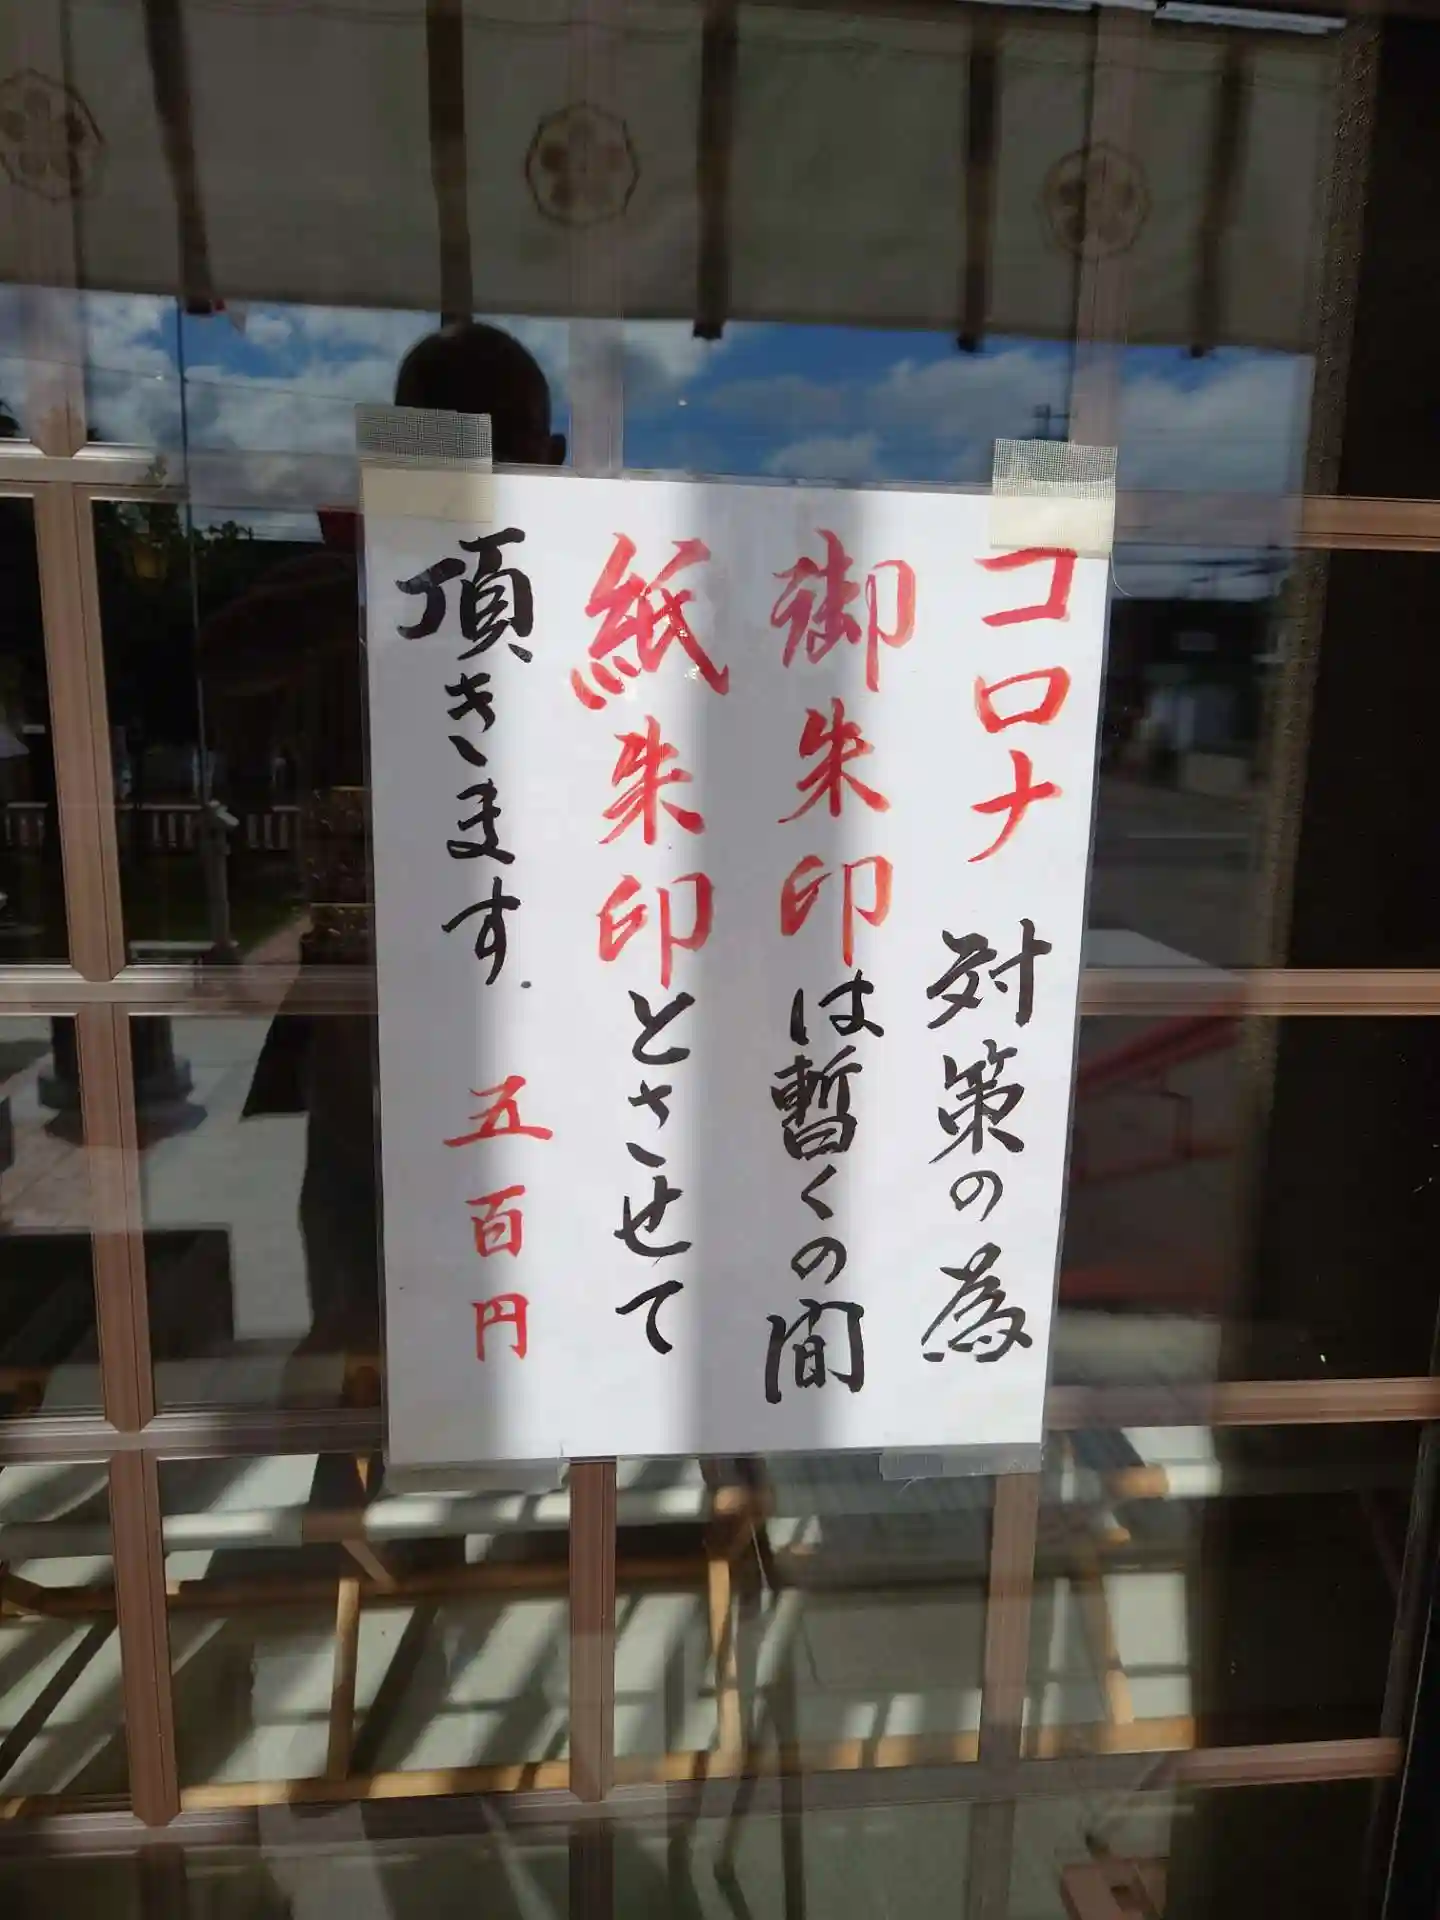 コロナ対策の為
御朱印は暫くの間
紙朱印とさせて
頂きます.五百円